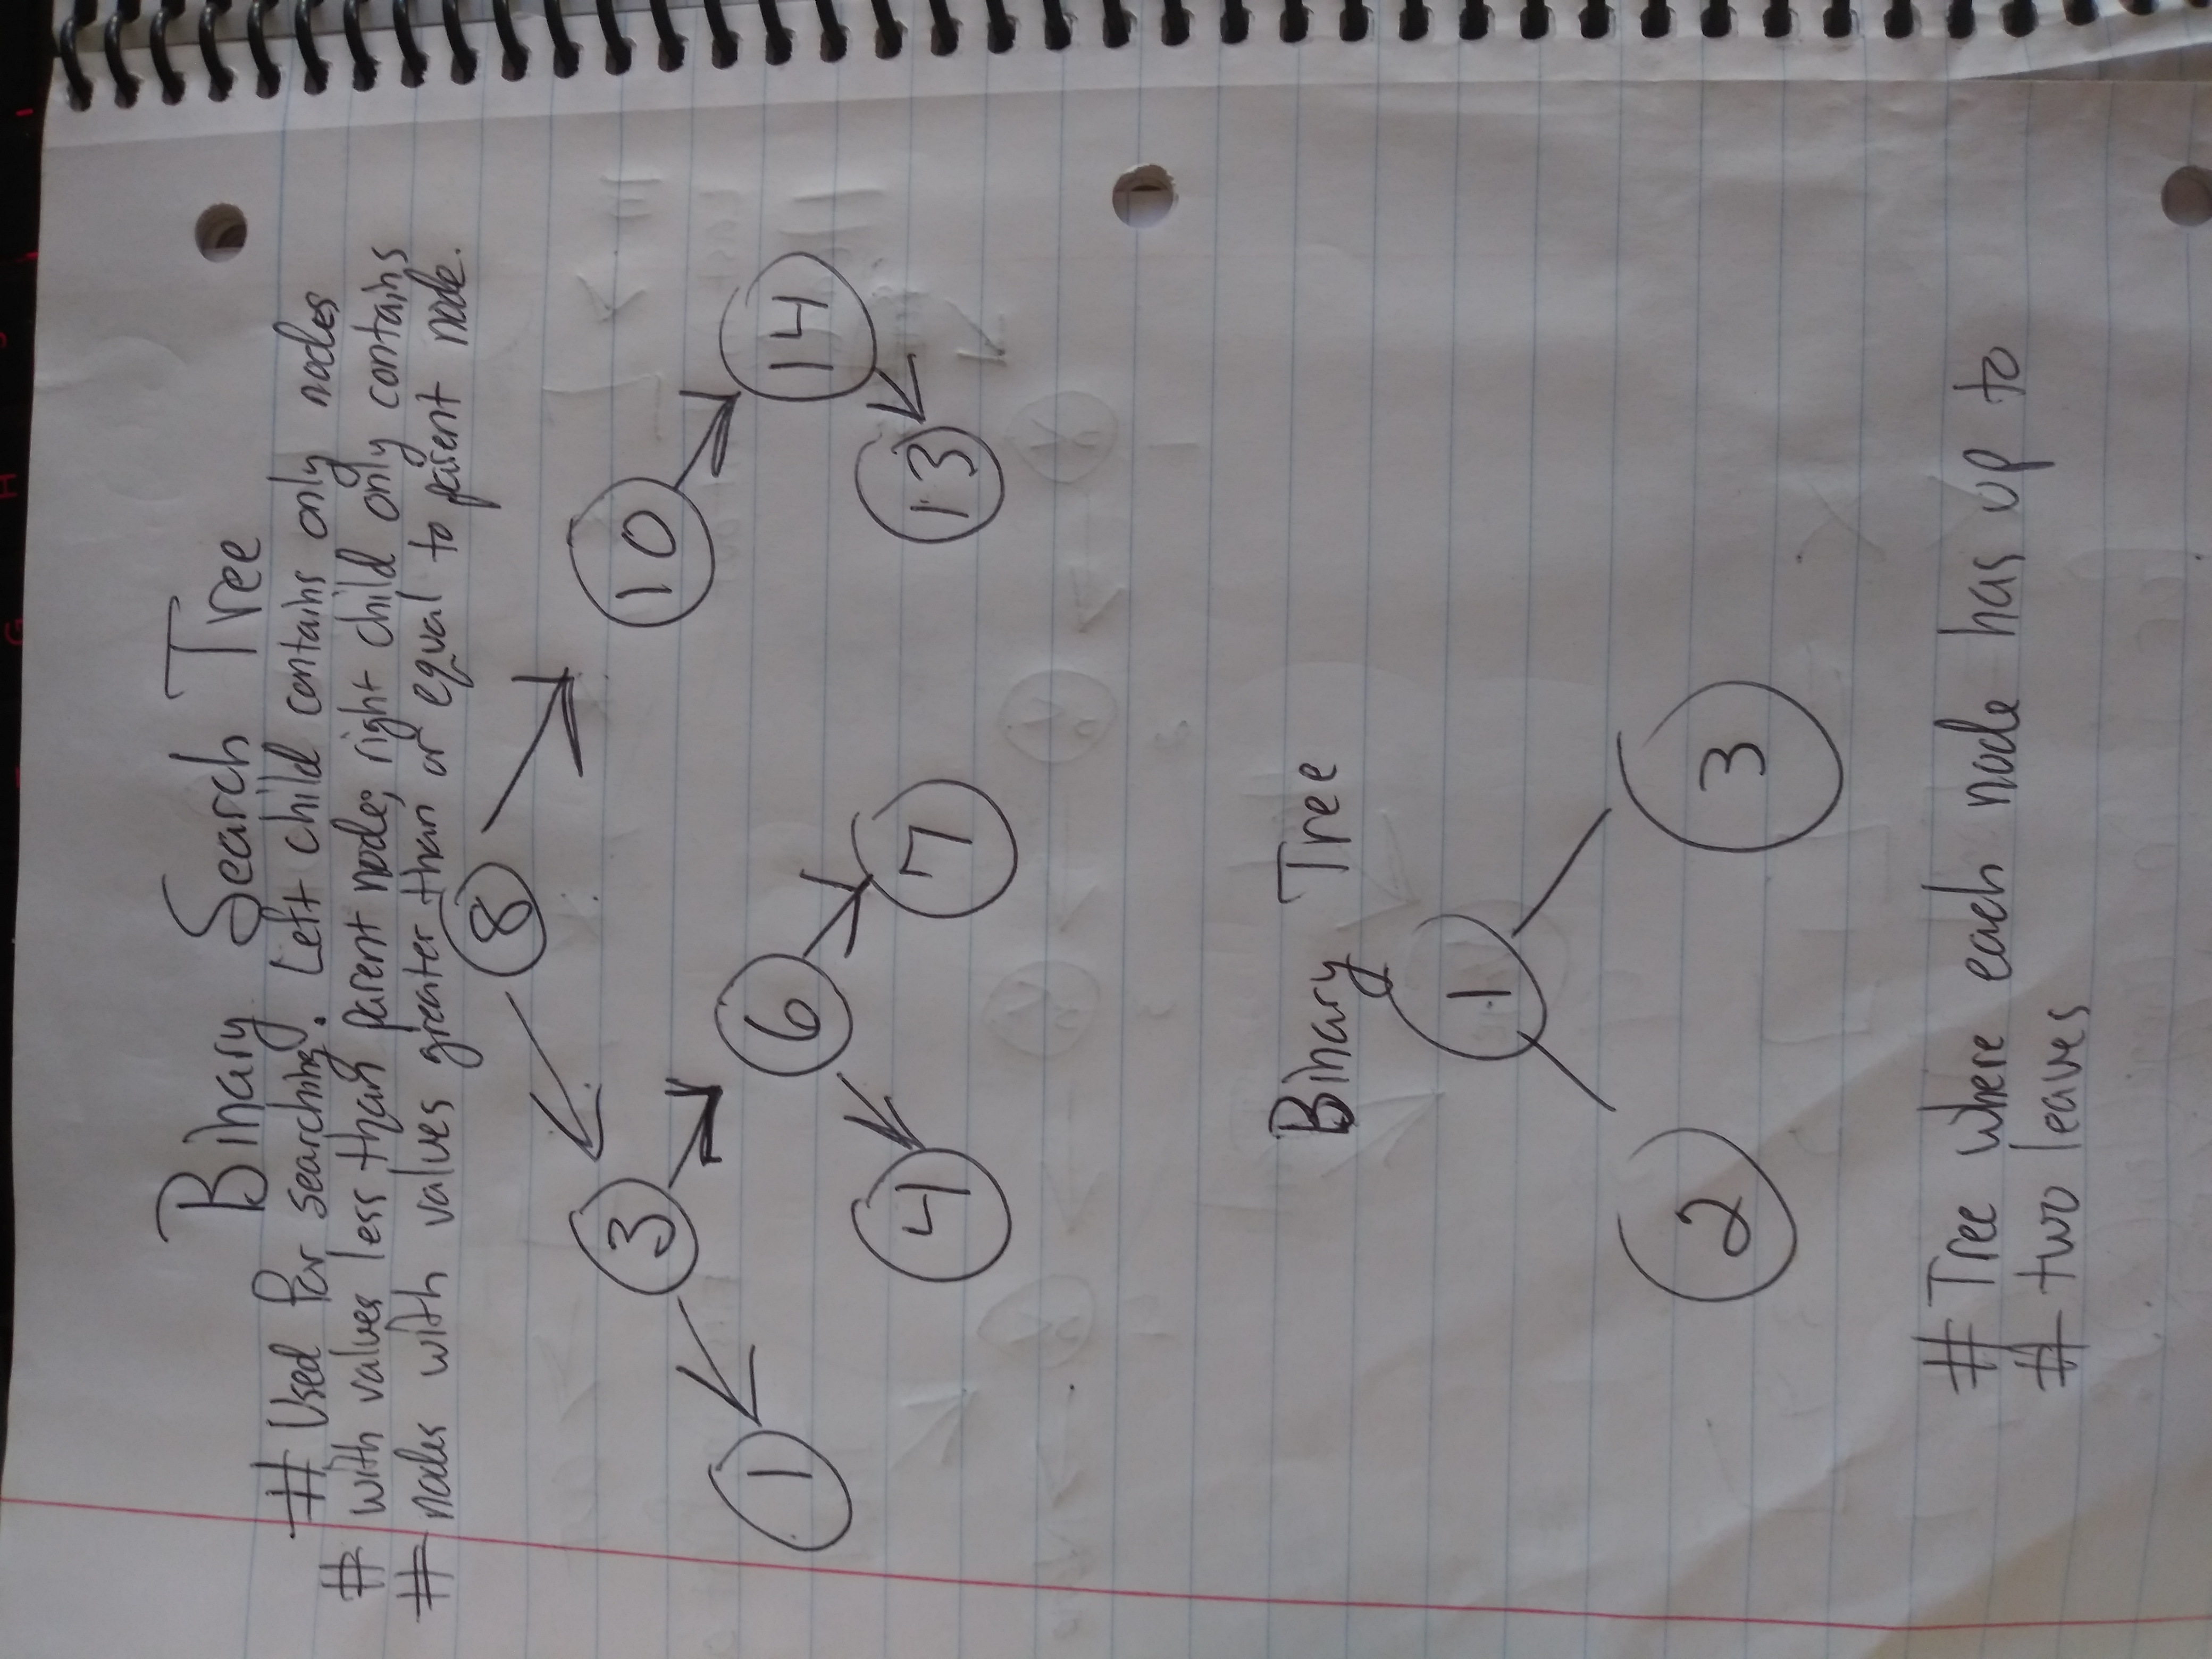 Binary Search Tree
# Used for searching. Left child contains only nodes
# with values less than parent node; right child only contains
# nodes with values greater than or equal to parent node.
8
3 10
1 6 14
4 7 13
Binary Tree
1
2 3
# Tree where each node has up to
# two leaves